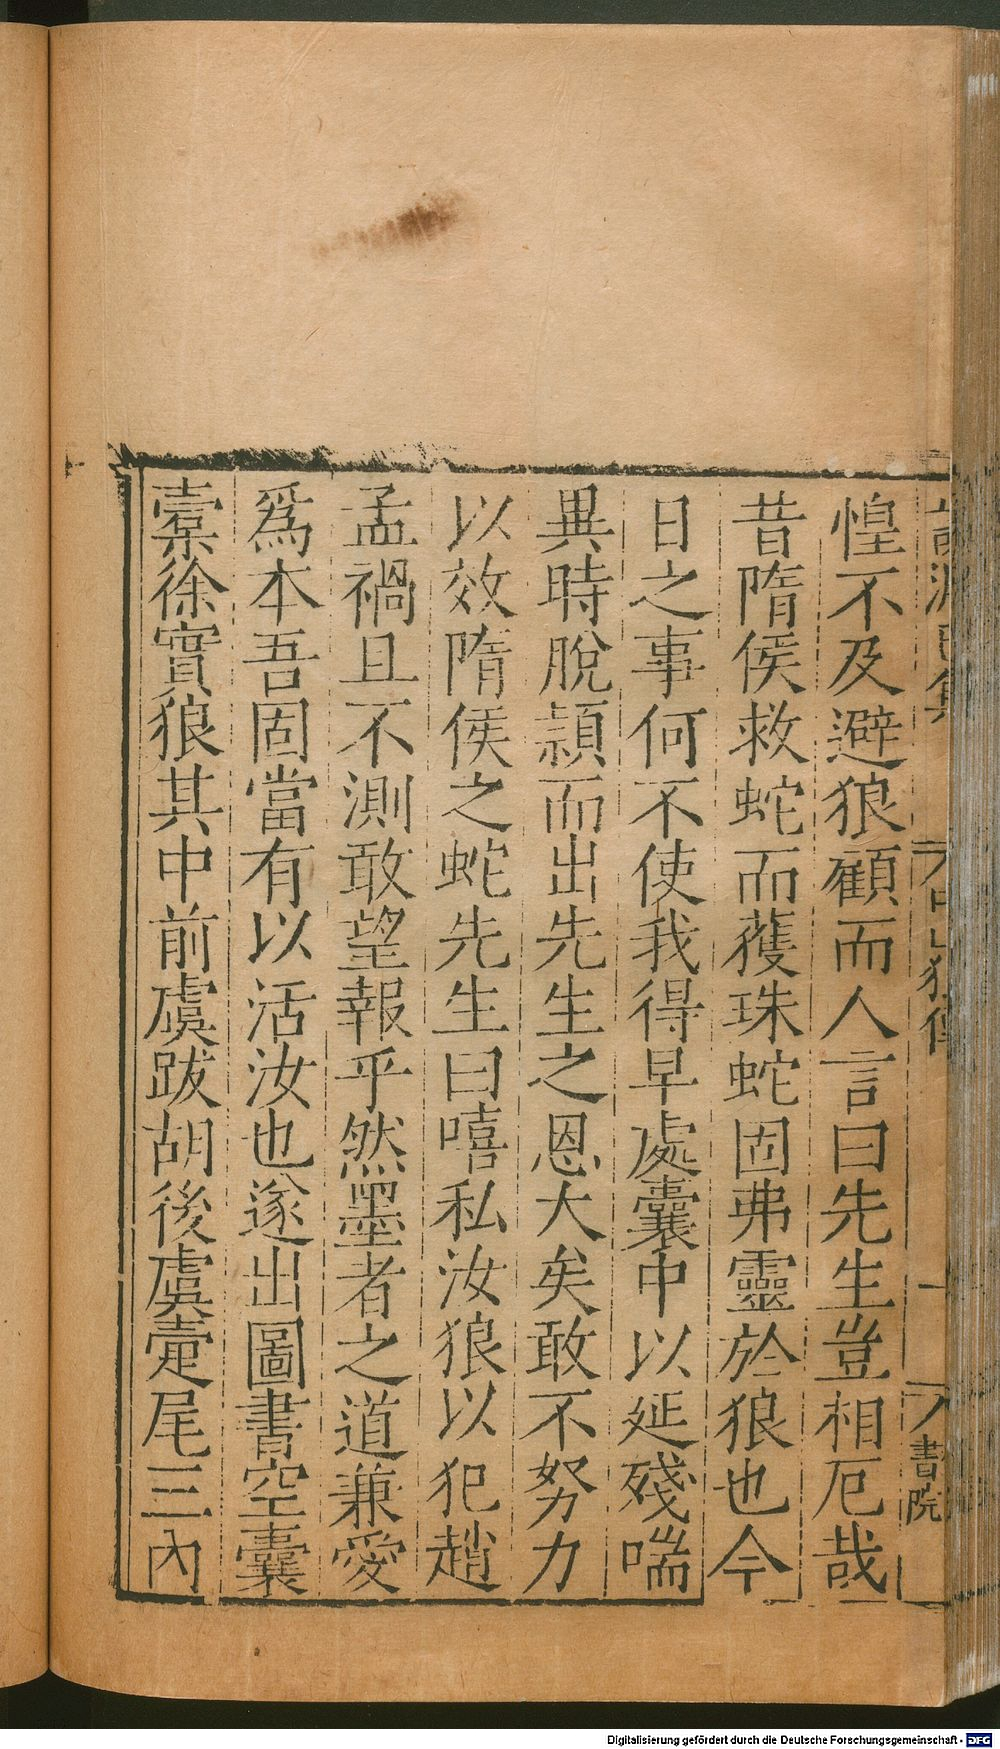 惶不及避狼顧而人言曰先生豈相厄哉
昔隋侯救蛇而獲珠蛇固弗靈於狼也今
日之事何不使我得早處囊中以延殘喘
異時脫穎而出先生之恩大矣敢不努力
以效隋侯之蛇先生曰嘻私汝狼以犯趙
孟禍且不測敢望報乎然墨者之道兼愛
爲本吾固當有以活汝也遂出圖書空囊
橐徐實狼其中前虞跋胡後虞疐尾三內
書院
Digitalisierung gefördert durch die Deutsche Forschungsgemeinschaft - DFG